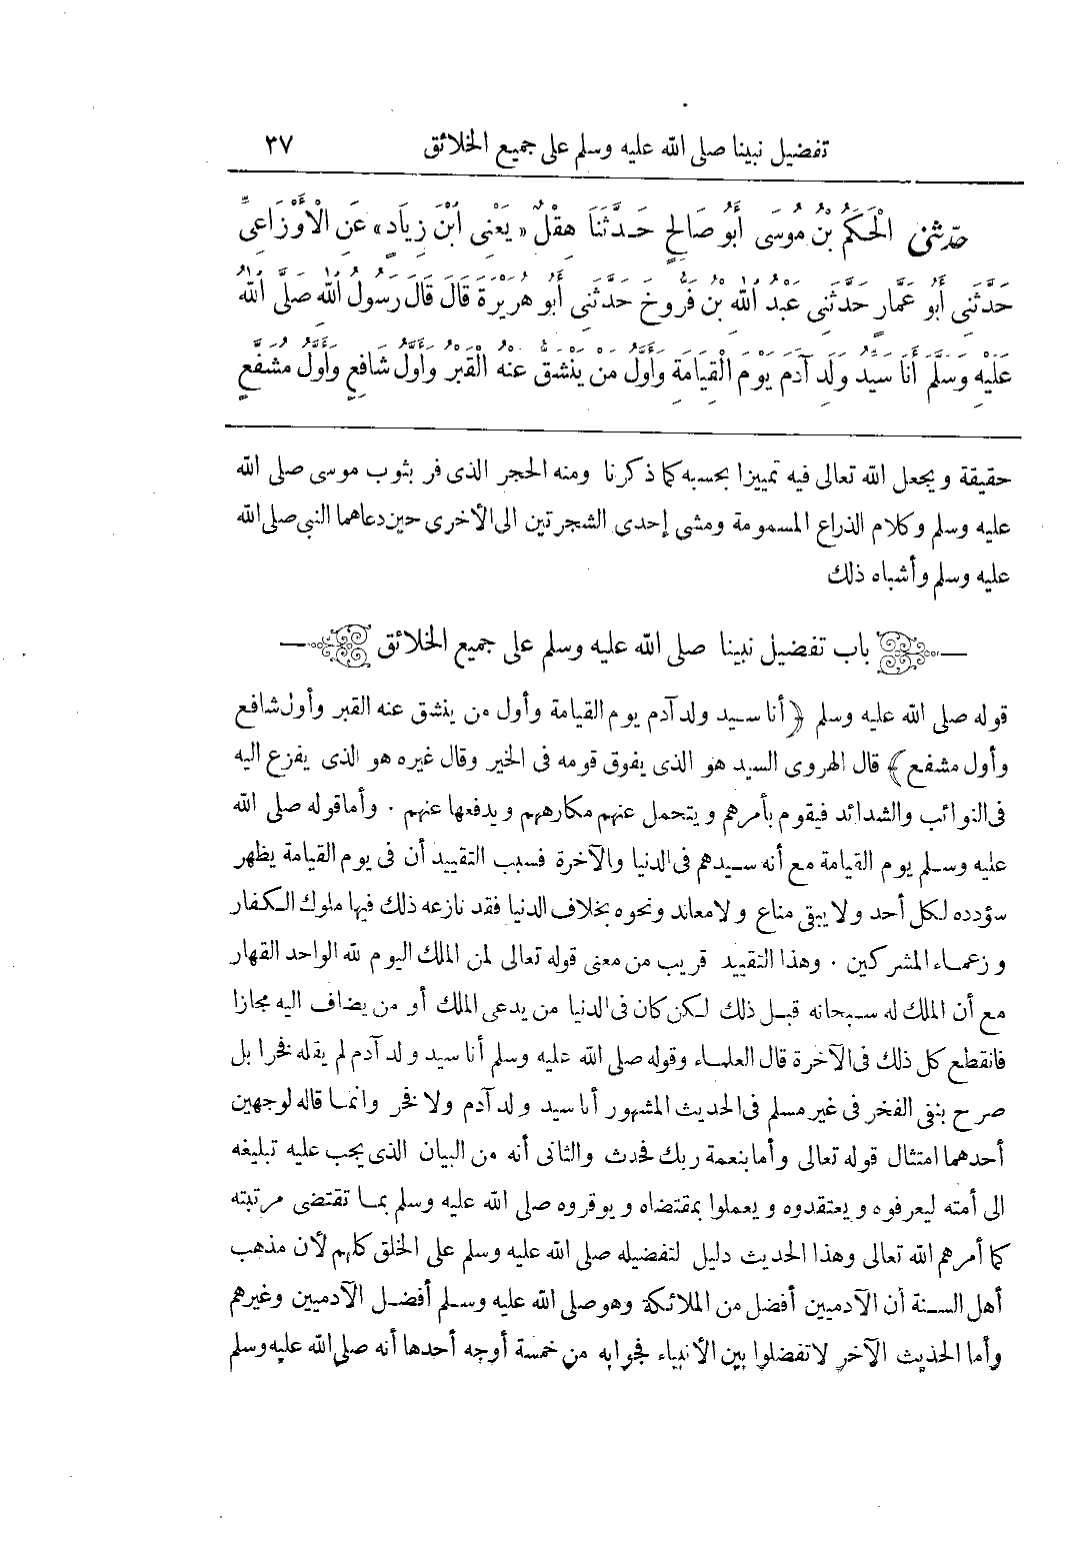 تفضيل نبينا صلى الله عليه وسلم على جميع الخلائق ٣٧
حدّثني الْحَكَمُ بْنُ مُوسَى أَبُو صَالِحٍ حَدَّثَنَا هِقْلٌ «يَعْنِى ابْنَ زِيَادٍ» عَنِ الْأَوْزَاعِىِّ
حَدَّثَنِى أَبُو عَمَّارٍ حَدَّثَنِى عَبْدُ اللهِ بْنُ فَرُّوخَ حَدَّثَنِى أَبُو هُرَيْرَةَ قَالَ قَالَ رَسُولُ اللهِ صَلَّى اللهُ
عَلَيْهِ وَسَلَّمَ أَنَا سَيِّدُ وَلَدِ آدَمَ يَوْمَ الْقِيَامَةِ وَأَوَّلُ مَنْ يَنْشَقُّ عَنْهُ الْقَبْرُ وَأَوَّلُ شَافِعٍ وَأَوَّلُ مُشَفَّعٍ
حقيقة ويجعل الله تعالى فيه تمييزا بحسبه كما ذكرنا ومنه الحجر الذى فر بثوب موسى صلى الله
عليه وسلم وكلام الذراع المسمومة ومشى إحدى الشجرتين الى الأخرى حين دعاهما النبى صلى الله
عليه وسلم وأشباه ذلك
باب تفضيل نبينا صلى الله عليه وسلم على جميع الخلائق
قوله صلى الله عليه وسلم ﴿أنا سيد ولد آدم يوم القيامة وأول من ينشق عنه القبر وأول شافع
وأول مشفع﴾ قال الهروى السيد هو الذى يفوق قومه فى الخير وقال غيره هو الذى يفزع اليه
فى النوائب والشدائد فيقوم بأمرهم ويتحمل عنهم مكارههم ويدفعها عنهم . وأما قوله صلى الله
عليه وسلم يوم القيامة مع أنه سيدهم فى الدنيا والآخرة فسبب التقييد أن فى يوم القيامة يظهر
سؤدده لكل أحد ولا يبقى مناع ولا معاند ونحوه بخلاف الدنيا فقد نازعه ذلك فيها ملوك الكفار
وزعماء المشركين . وهذا التقييد قريب من معنى قوله تعالى لمن الملك اليوم لله الواحد القهار
مع أن الملك له سبحانه قبل ذلك لكن كان فى الدنيا من يدعى الملك أو من يضاف اليه مجازا
فانقطع كل ذلك فى الآخرة قال العلماء وقوله صلى الله عليه وسلم أنا سيد ولد آدم لم يقله فخرا بل
صرح بنفى الفخر فى غير مسلم فى الحديث المشهور أنا سيد ولد آدم ولا فخر وانما قاله لوجهين
أحدهما امتثال قوله تعالى وأما بنعمة ربك فحدث والثانى أنه من البيان الذى يجب عليه تبليغه
الى أمته ليعرفوه ويعتقدوه ويعملوا بمقتضاه ويوقروه صلى الله عليه وسلم بما تقتضى مرتبته
كما أمرهم الله تعالى وهذا الحديث دليل لتفضيله صلى الله عليه وسلم على الخلق كلهم لأن مذهب
أهل السنة أن الآدميين أفضل من الملائكة وهو صلى الله عليه وسلم أفضل الآدميين وغيرهم
وأما الحديث الآخر لا تفضلوا بين الأنبياء فجوابه من خمسة أوجه أحدها أنه صلى الله عليه وسلم